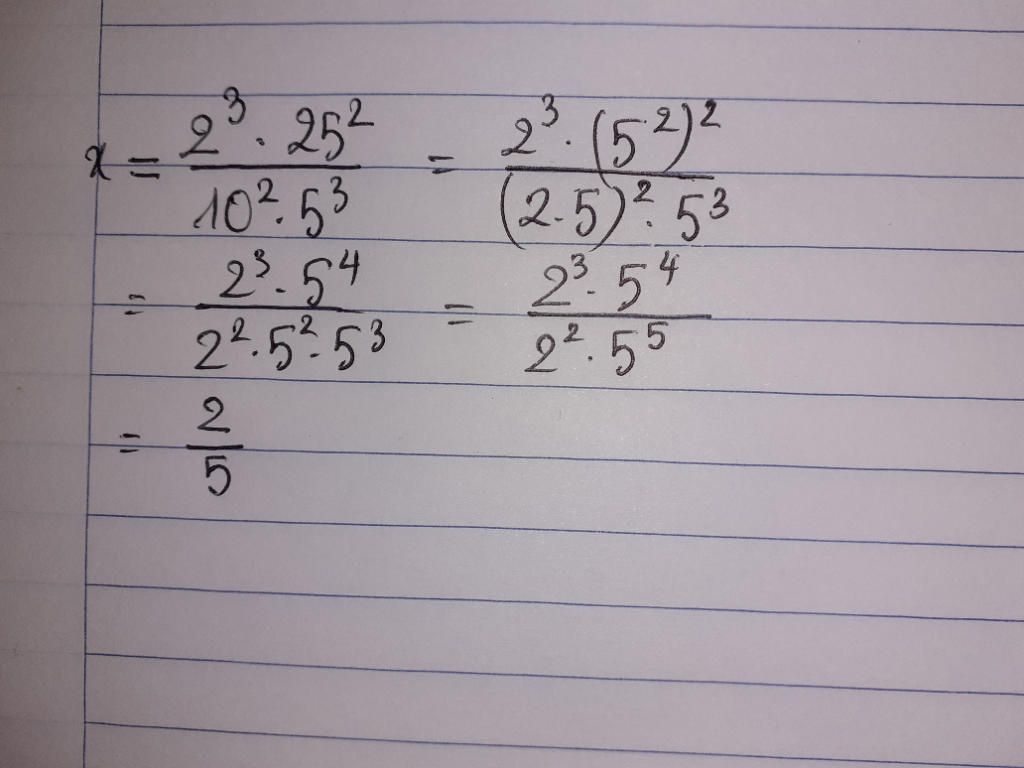 x = \frac{2^3 \cdot 25^2}{10^2 \cdot 5^3} = \frac{2^3 \cdot (5^2)^2}{(2 \cdot 5)^2 \cdot 5^3}
= \frac{2^3 \cdot 5^4}{2^2 \cdot 5^2 \cdot 5^3} = \frac{2^3 \cdot 5^4}{2^2 \cdot 5^5}
= \frac{2}{5}